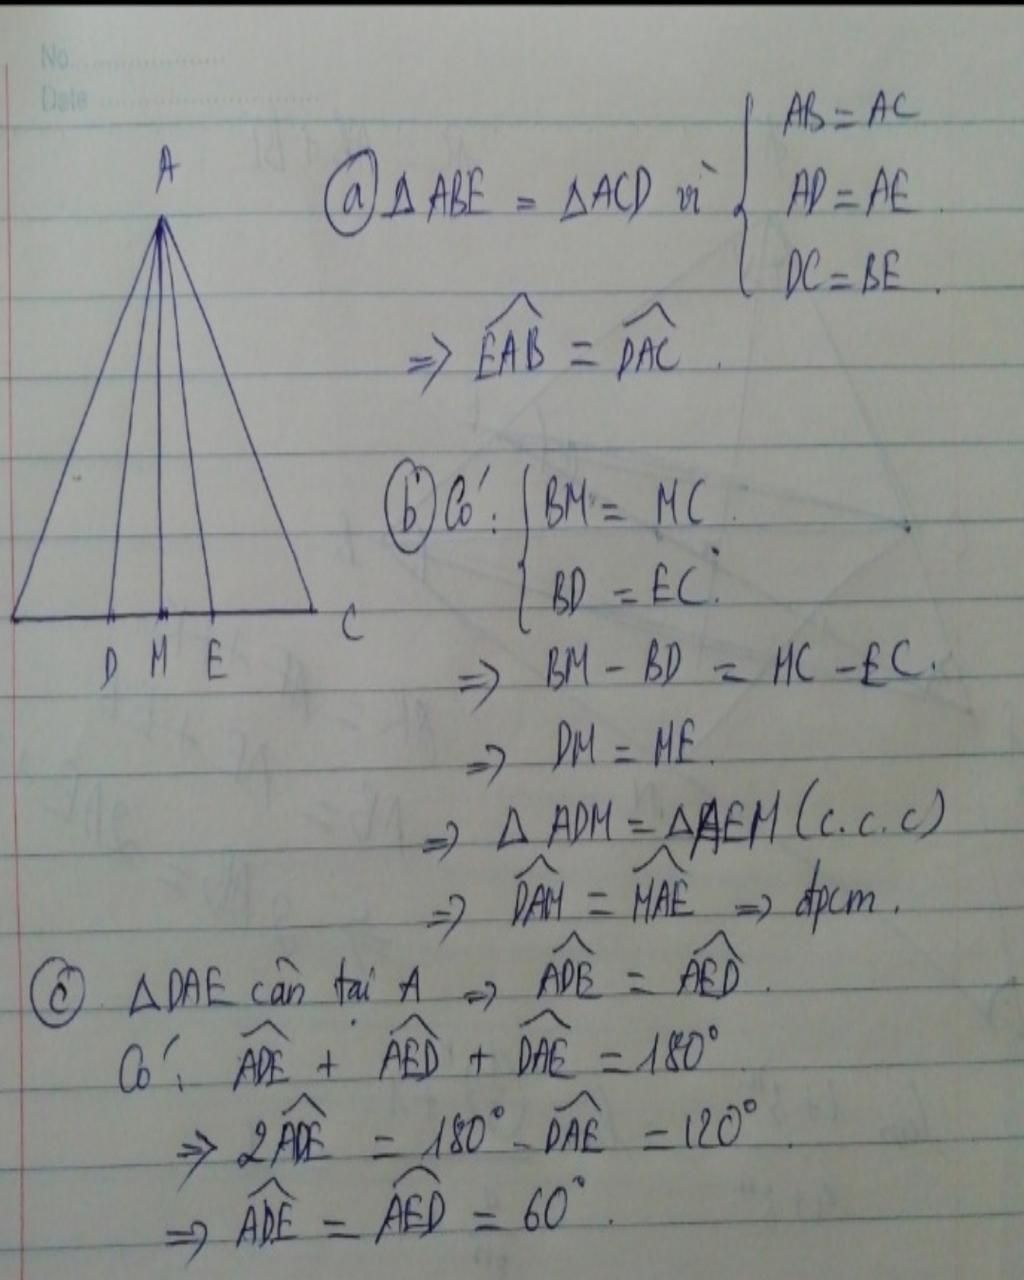 No.
Date
A
D M E C
(a) Δ ABE = ΔACD vì { AB = AC
AD = AE.
DC = BE.
=> \widehat{EAB} = \widehat{DAC}.
(b) Có: { BM = MC.
BD = EC.
=> BM - BD = MC - EC.
=> DM = ME.
=> Δ ADM = ΔAEM (c.c.c)
=> \widehat{DAM} = \widehat{MAE} => đpcm.
(c) ΔDAE cân tại A => \widehat{ADE} = \widehat{AED}.
Có: \widehat{ADE} + \widehat{AED} + \widehat{DAE} = 180°
=> 2\widehat{ADE} = 180° - \widehat{DAE} = 120°.
=> \widehat{ADE} = \widehat{AED} = 60°.